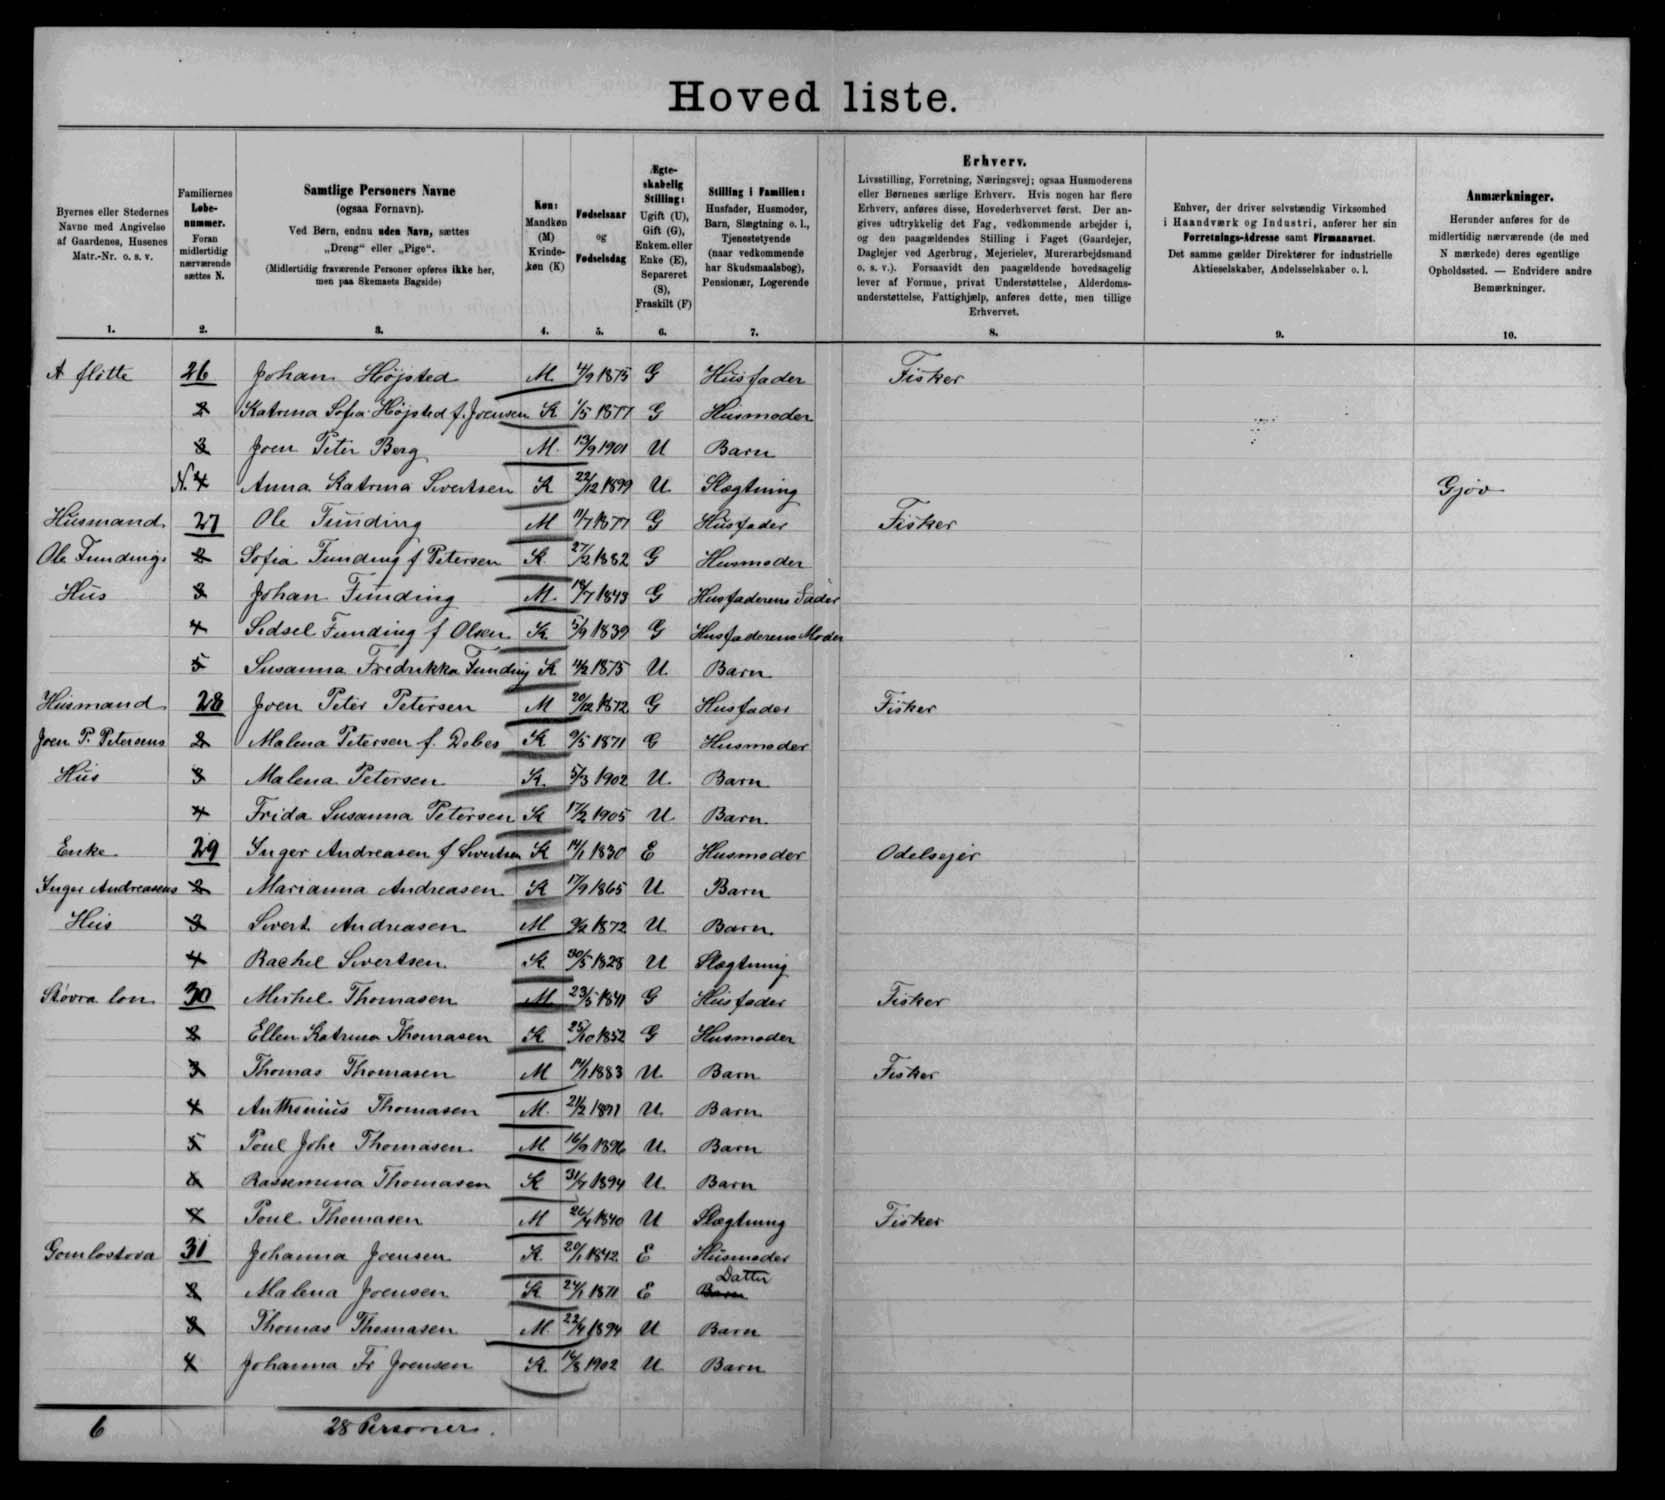 Hoved liste.
Byernes eller Stedernes Navne med Angivelse af Gaardenes, Husenes Matr.-Nr. o. s. v.
Familiernes Løbe-nummer. Foran midlertidig nærværende sættes N.
Samtlige Personers Navne
(ogsaa Fornavn).
Ved Børn, endnu uden Navn, sættes „Dreng“ eller „Pige“.
(Midlertidig fraværende Personer opføres ikke her, men paa Skemaets Bagside)
Køn: Mandkøn (M) Kvinde-køn (K)
Fødselsaar og Fødselsdag
Ægte-skabelig Stilling: Ugift (U), Gift (G), Enkem. eller Enke (E), Separeret (S), Fraskilt (F)
Stilling i Familien: Husfader, Husmoder, Barn, Slægtning o. l., Tjenestetyende (naar vedkommende har Skudsmaalsbog), Pensionær, Logerende
Erhverv.
Livsstilling, Forretning, Næringsvej; ogsaa Husmoderens eller Børnenes særlige Erhverv. Hvis nogen har flere Erhverv, anføres disse, Hovederhvervet først. Der angives udtrykkelig det Fag, vedkommende arbejder i, og den paagældendes Stilling i Faget (Gaardejer, Daglejer ved Agerbrug, Mejerielev, Murerarbejdsmand o. s. v.). Forsaavidt den paagældende hovedsagelig lever af Formue, privat Understøttelse, Alderdoms-understøttelse, Fattighjælp, anføres dette, men tillige Erhvervet.
Enhver, der driver selvstændig Virksomhed i Haandværk og Industri, anfører her sin Forretnings-Adresse samt Firmanavnet. Det samme gælder Direktører for industrielle Aktieselskaber, Andelsselskaber o. l.
Anmærkninger.
Herunder anføres for de midlertidig nærværende (de med N mærkede) deres egentlige Opholdssted. — Endvidere andre Bemærkninger.
1. 2. 3. 4. 5. 6. 7. 8. 9. 10.
A fløtte 26 Johan Højsted M 4/9 1875 G Husfader Fisker
2 Katrina Sofia Højsted f. Joensen K 1/5 1877 G Husmoder
3 Joen Peter Berg M. 13/9 1901 U Barn
N. 4 Anna Katrina Sivertsen K 22/12 1899 U Slægtning Gjov
Husmand 27 Ole Funding M 11/7 1877 G Husfader Fisker
Ole Fundings 2 Sofia Funding f Petersen K. 27/2 1882 G Husmoder
Hus 3 Johan Funding M. 19/7 1843 G Husfaderens Fader
4 Sidsel Funding f Olsen K 5/9 1839 G Husfaderens Moder
5 Susanna Fredrikka Funding K 4/2 1875 U Barn
Husmand 28 Joen Peter Petersen M 20/12 1872 G Husfader Fisker
Joen P. Petersens 2 Malena Petersen f. Debes K 9/5 1871 G Husmoder
Hus 3 Malena Petersen K. 5/3 1902 U Barn
4 Frida Susanna Petersen K 17/2 1905 U Barn
Enke 29 Inger Andreasen f Sivertsen K 14/1 1830 E Husmoder Odelsejer
Inger Andreasens 2 Marianna Andreasen K 17/9 1865 U Barn
Hus 3 Sivert Andreasen M 9/2 1872 U Barn
4 Rachel Sivertsen K 30/5 1828 U Slægtning
Støvra lon 30 Mikkel Thomasen M 23/5 1841 G Husfader Fisker
2 Ellen Katrina Thomasen K 25/10 1852 G Husmoder
3 Thomas Thomasen M 14/1 1883 U Barn Fisker
4 Anthonius Thomasen M. 21/2 1891 U Barn
5 Poul Johs Thomasen M 16/9 1896 U Barn
6 Rassemina Thomasen K 31/7 1894 U Barn
7 Poul Thomasen M 26/4 1840 U Slægtning Fisker
Gomlostova 31 Johanna Joensen K 20/1 1842 E Husmoder
Datter
2 Malena Joensen K 24/1 1871 E Barn
3 Thomas Thomasen M. 22/4 1894 U Barn
4 Johanna Fr Joensen K 14/8 1902 U Barn
6 28 Personer.